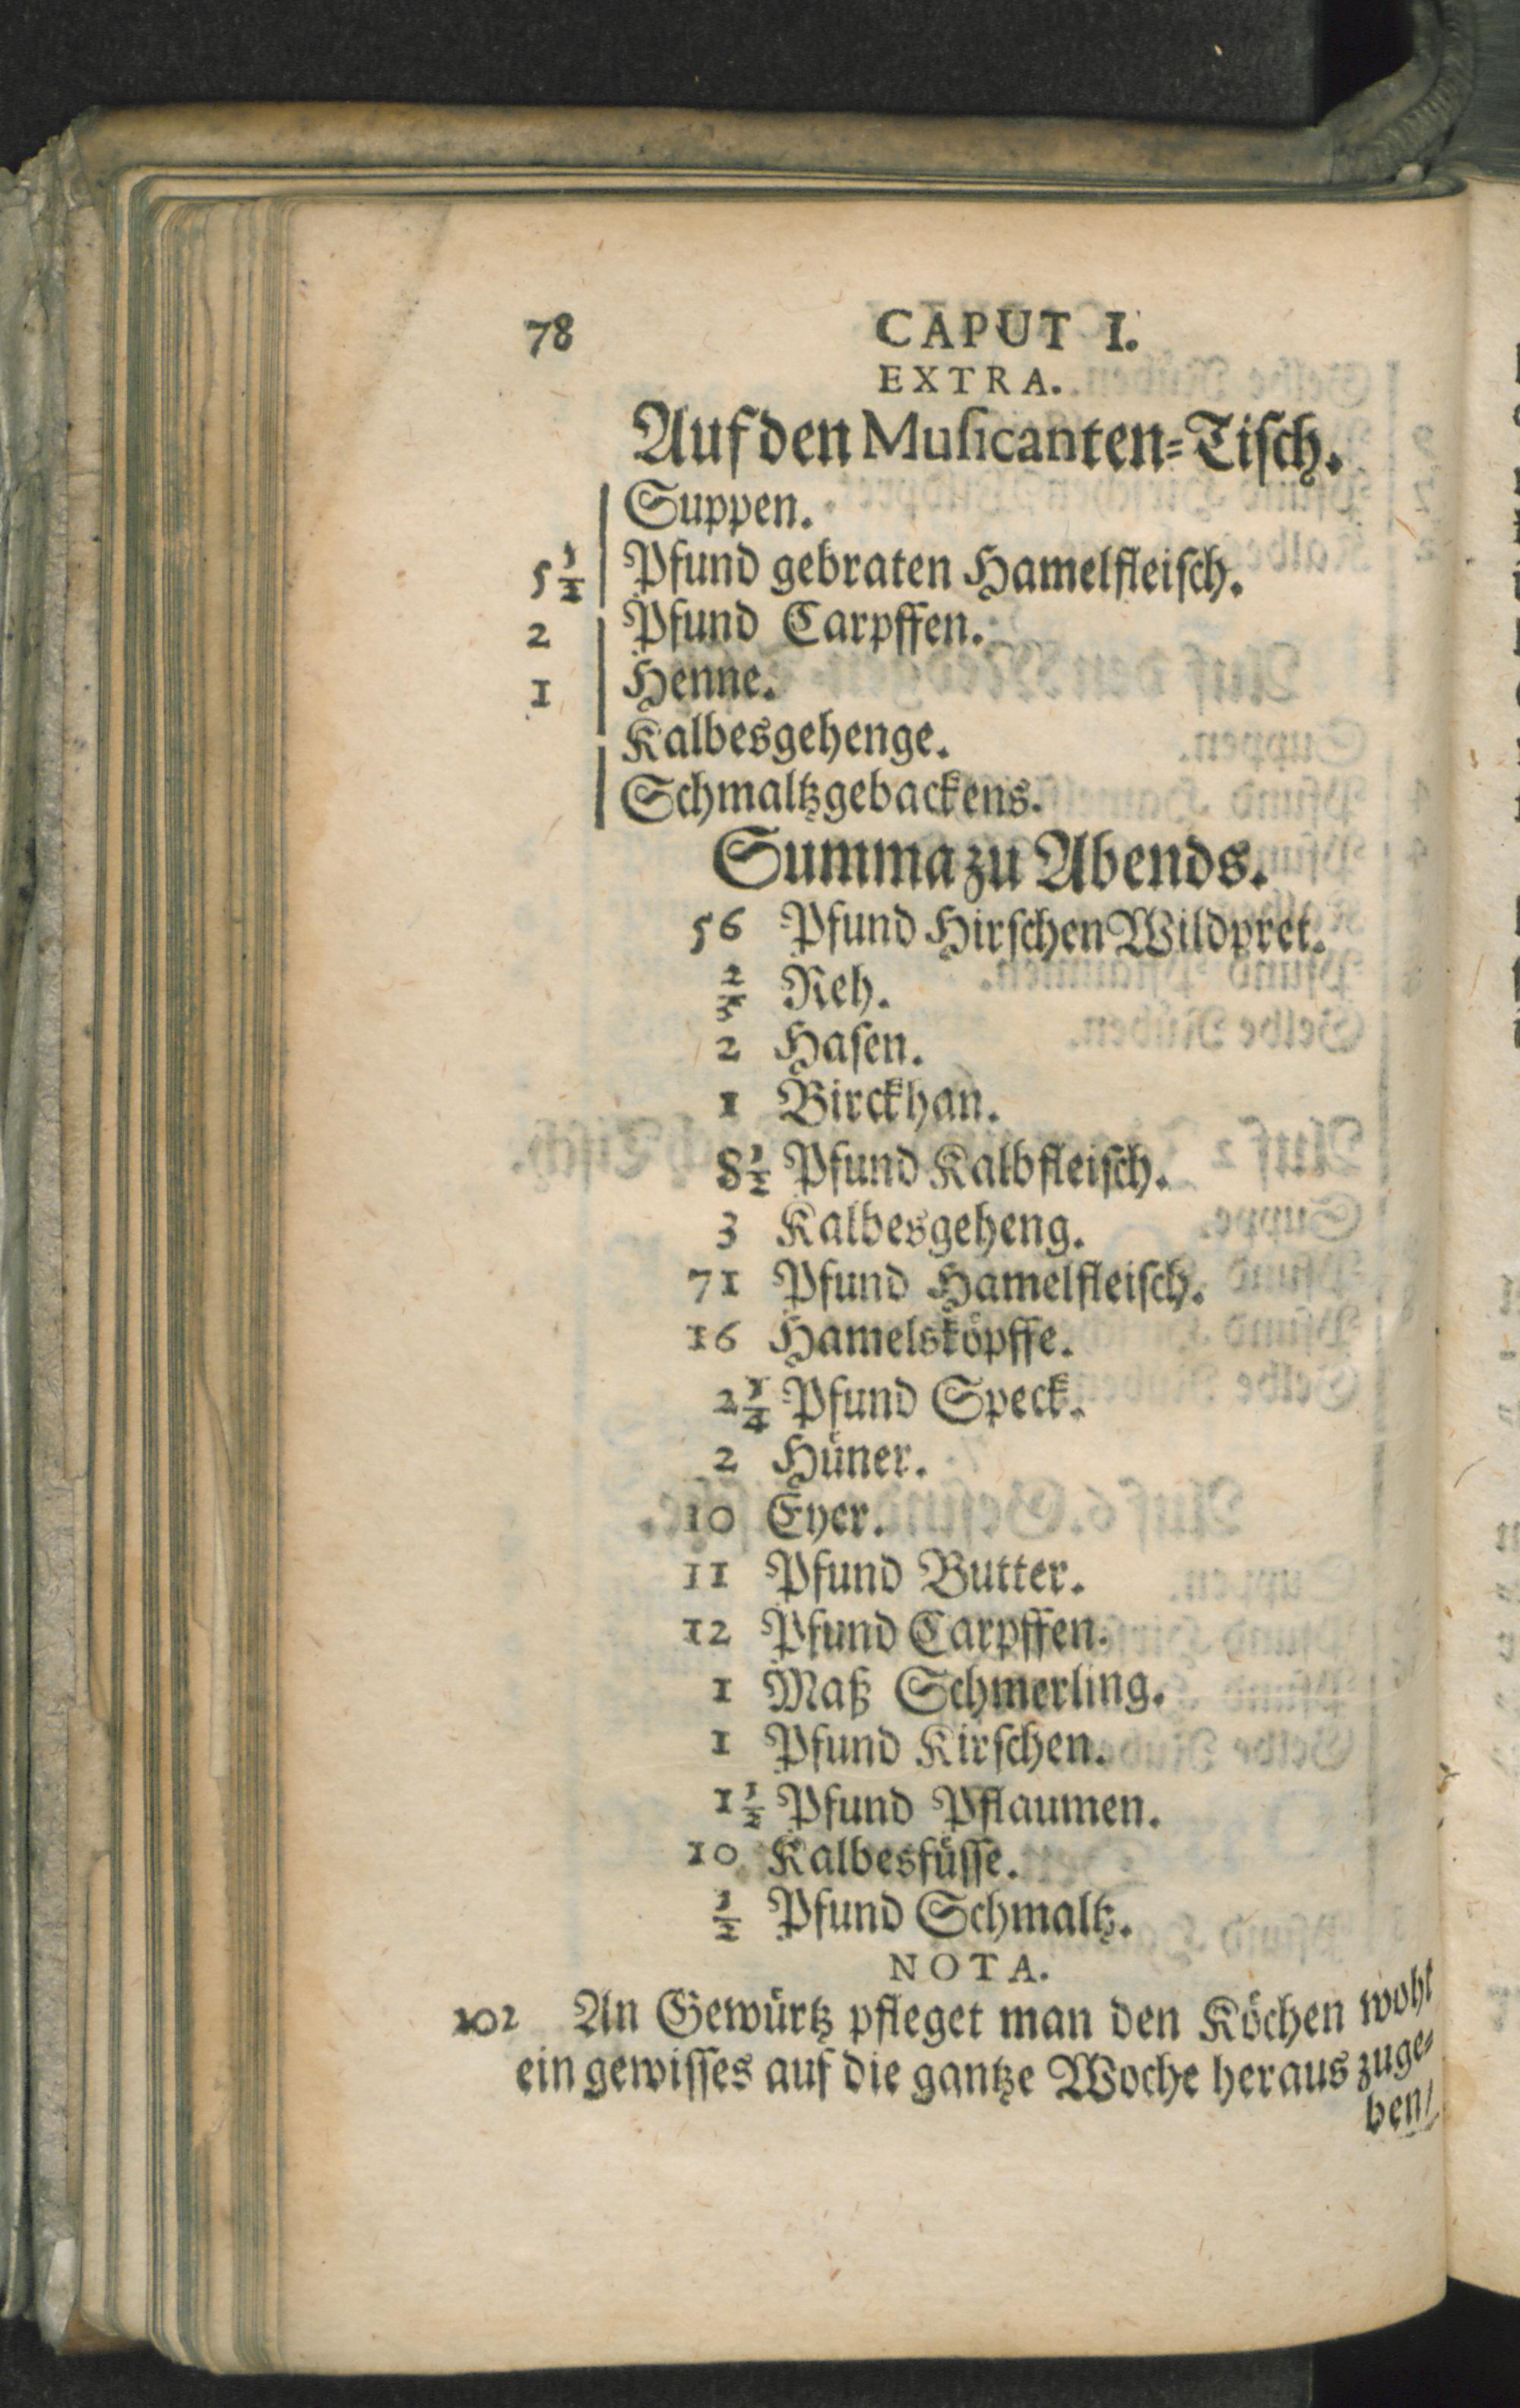 78 CAPUT I.
EXTRA.
Auf den Musicanten-Tisch.
Suppen.
5 1/2 Pfund gebraten Hamelfleisch.
2 Pfund Carpffen.
1 Henne.
Kalbesgehenge.
Schmaltzgebackens.
Summa zu Abends.
56 Pfund Hirschen Wildpret.
Reh.
2 Hasen.
1 Birckhan.
8 1/2 Pfund Kalbfleisch.
3 Kalbesgeheng.
71 Pfund Hamelfleisch.
16 Hamelsköpffe.
2 1/4 Pfund Speck.
2 Hüner.
10 Eyer.
11 Pfund Butter.
12 Pfund Carpffen.
1 Maß Schmerling.
1 Pfund Kirschen.
1 1/2 Pfund Pflaumen.
10 Kalbesfüsse.
1/2 Pfund Schmaltz.
NOTA.
102 An Gewürtz pfleget man den Köchen wohl
ein gewisses auf die gantze Woche heraus zuge-
ben/